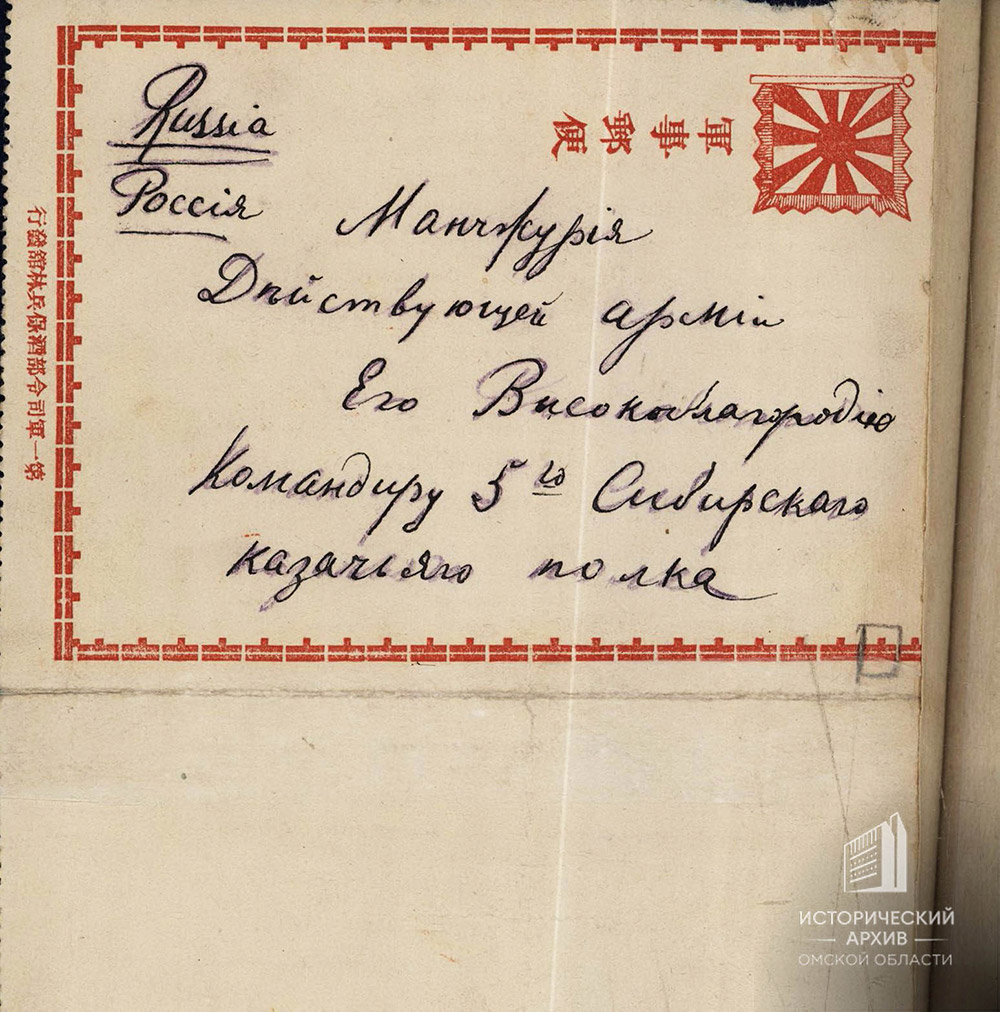 Russia
Россія
軍事郵便
Манчжурія
Дѣйствующей арміи
Его Високоблагородію
Командиру 5го Сибирскаго
казачьяго полка
第一軍司令部酒保兵林舘發行
ИСТОРИЧЕСКИЙ
АРХИВ
ОМСКОЙ ОБЛАСТИ